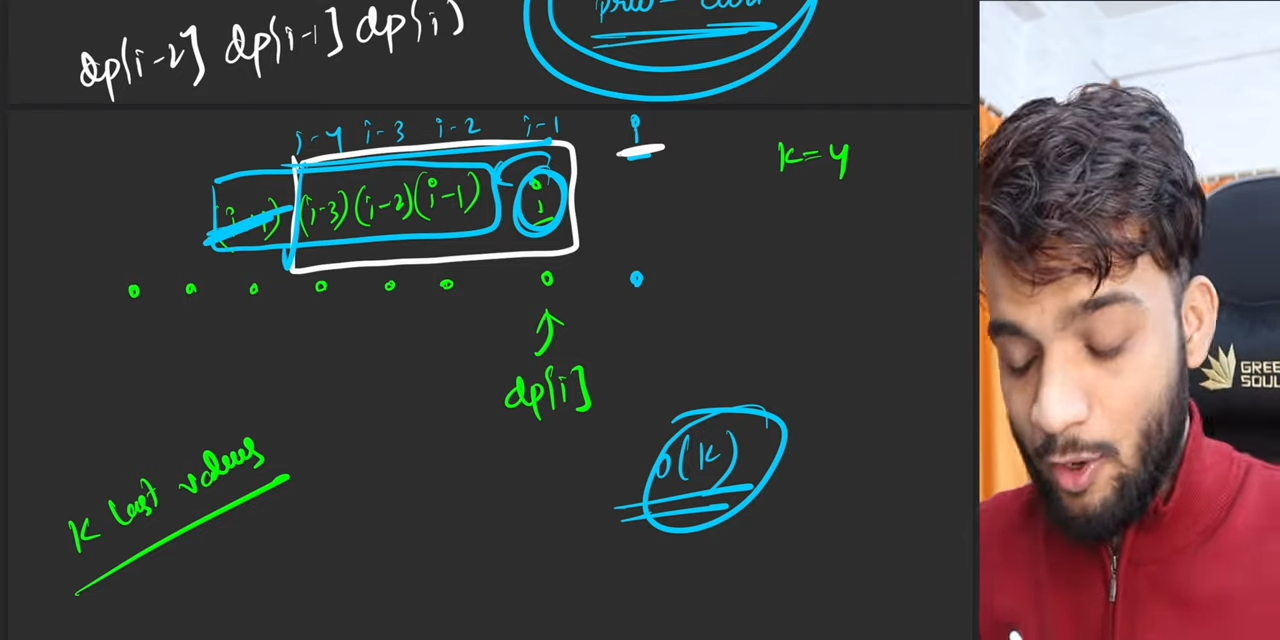 dp[i-2] dp[i-1] dp[i]
prev = curr
i-4 i-3 i-2 i-1 i
K=4
(i-3) (i-2) (i-1) i
dp[i]
O(K)
K last values
GREE
SOUL